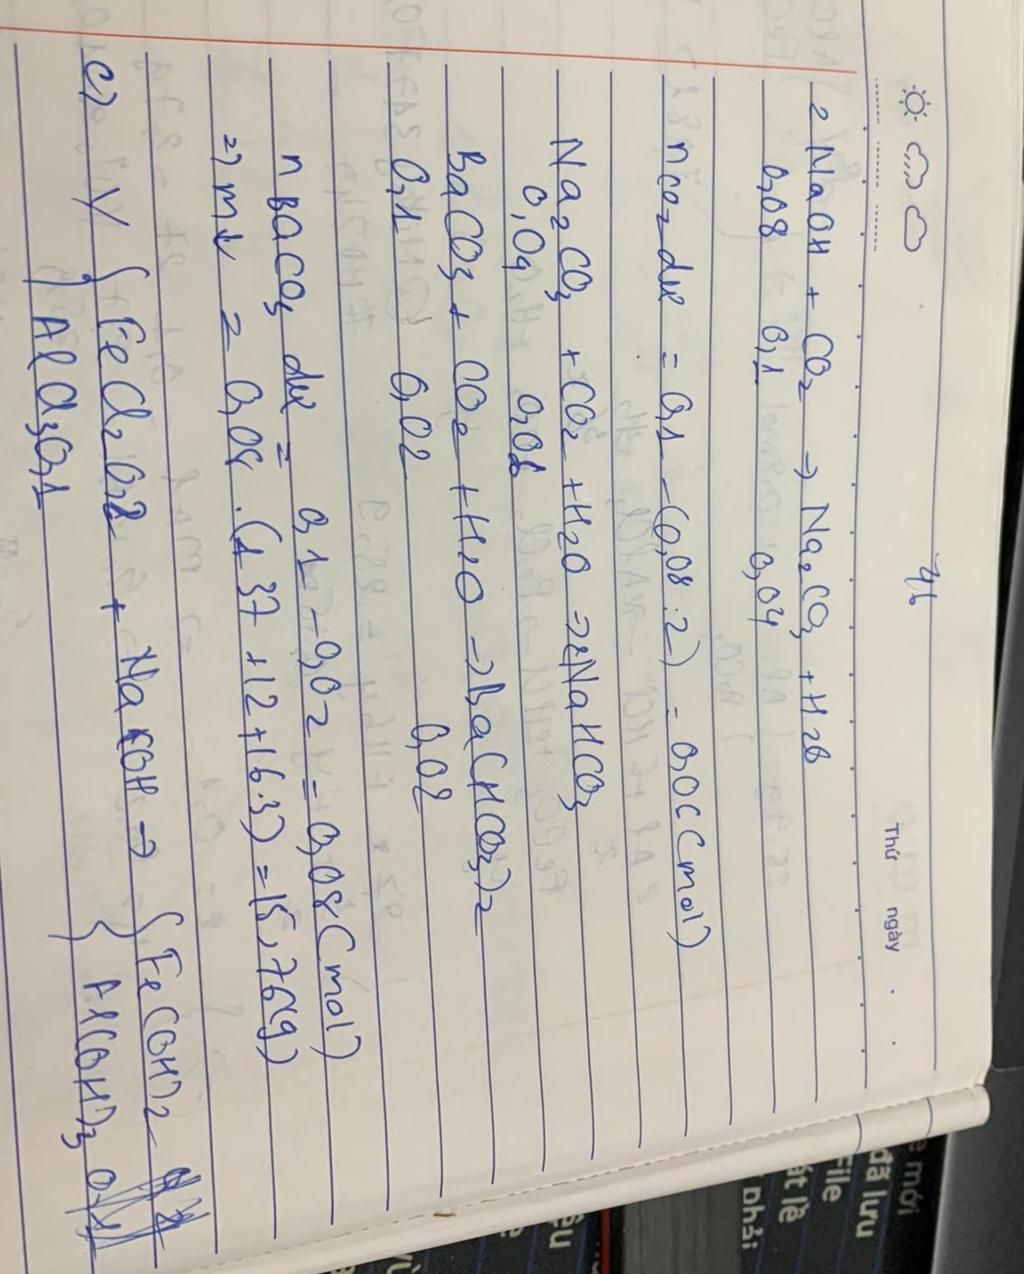 7/6
Thứ ngày . .
2NaOH + CO2 → Na2CO3 + H2O
0,08 0,1 0,04
nCO2 dư = 0,1 - (0,08:2) = 0,06 (mol)
Na2CO3 + CO2 + H2O → 2NaHCO3
0,04 0,04
BaCO3 + CO2 + H2O → Ba(HCO3)2
0,1 0,02 0,02
n BaCO3 dư = 0,1 - 0,02 = 0,08 (mol)
=> m↓ = 0,08 . (137 + 12 + 16.3) = 15,76(g)
c) Y { FeCl2 0,2 + NaOH → { Fe(OH)2
{ AlCl3 0,1 { Al(OH)3 0,1
e mới
đã lưu
File
ất lề
phải